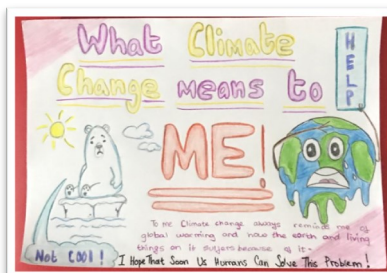 What Climate
Change means to
ME!
HELP
To me Climate change always reminds me of
global warming and how the earth and living
things on it suffers because of it.
Not COOl!
I Hope That Soon Us Humans Can Solve This Problem!